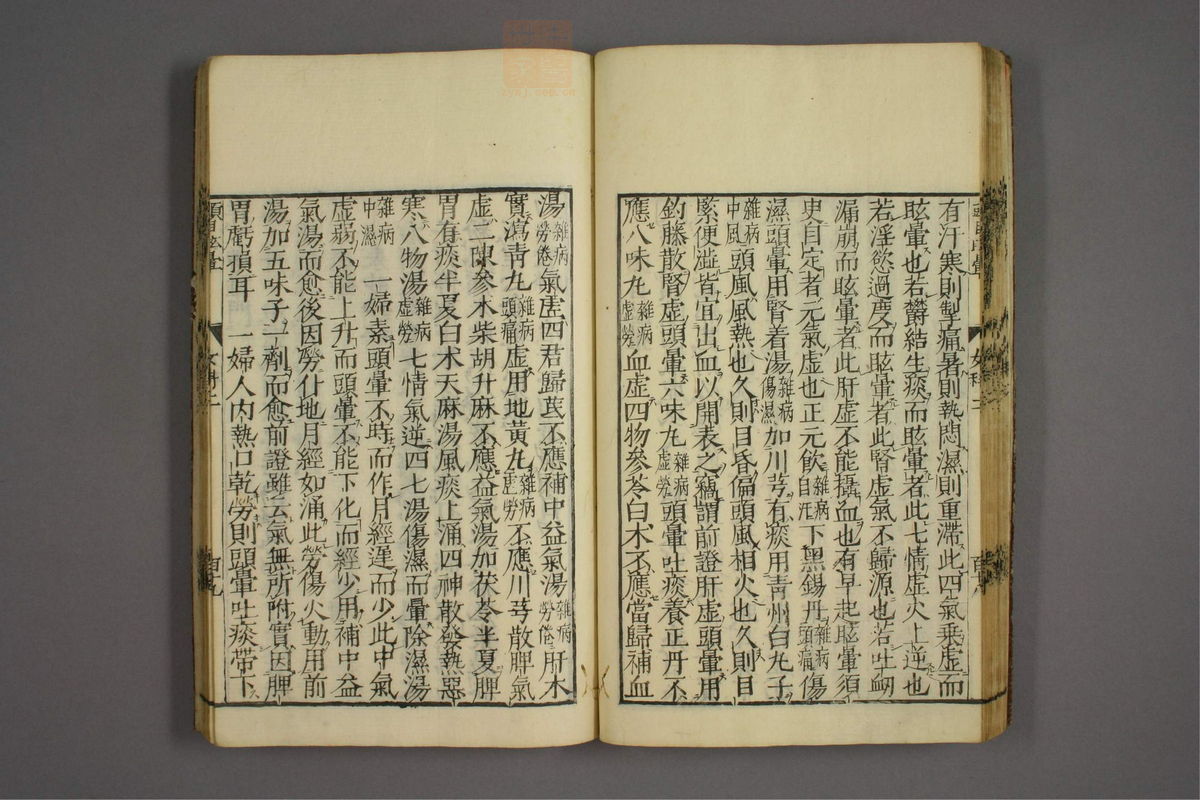 有汗寒則掣痛暑則熱悶濕則重滯此四氣乘虛而
眩暈也若鬱結生痰而眩暈者此七情虛火上逆也
若淫慾過度而眩暈者此腎虛氣不歸源也若吐衄
漏崩而眩暈者此肝虛不能攝血也有早起眩暈須
史自定者元氣虛也正元飲雜病下黑錫丹雜病頭痛傷
濕頭暈用腎着湯雜病傷濕加川芎有痰用青州白丸子
雜病中風頭風風熱也久則目昏偏頭風相火也久則目
緊便澁皆宜出血以開表之竊謂前證肝虛頭暈用
釣藤散腎虛頭暈六味丸雜病虛勞頭暈吐痰養正丹不
應八味丸雜病虛勞血虛四物參苓白术不應當歸補血
湯雜病勞倦氣虛四君歸芪不應補中益氣湯雜病勞倦肝木
實瀉青丸雜病頭痛虛用地黃丸雜病虛勞不應川芎散脾氣
虛二陳參术柴胡升麻不應益氣湯加茯苓半夏脾
胃有痰半夏白术天麻湯風痰上涌四神散發熱惡
寒八物湯雜病虛勞七情氣逆四七湯傷濕而暈除濕湯
雜病中濕 一婦素頭暈不時而作月經遲而少此中氣
虛弱不能上升而頭暈不能下化而經少用補中益
氣湯而愈後因勞仆地月經如涌此勞傷火動用前
湯加五味子一劑而愈前證雖云氣無所附實因脾
胃虧損耳 一婦人內熱口乾勞則頭暈吐痰帶下
女科二